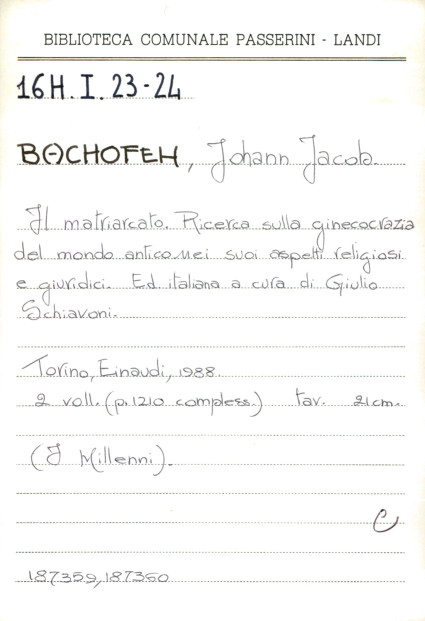 BIBLIOTECA COMUNALE PASSERINI - LANDI
16H. I. 23-24
BACHOFEN, Johann Jacob.
Il matriarcato. Ricerca sulla ginecocrazia
del mondo antico nei suoi aspetti religiosi
e giuridici. Ed italiana a cura di Giulio
Schiavoni.
Torino, Einaudi, 1988.
2 voll. (p. 1210 compless.) tav. 21 cm.
(I Millenni).
C
187359, 187360